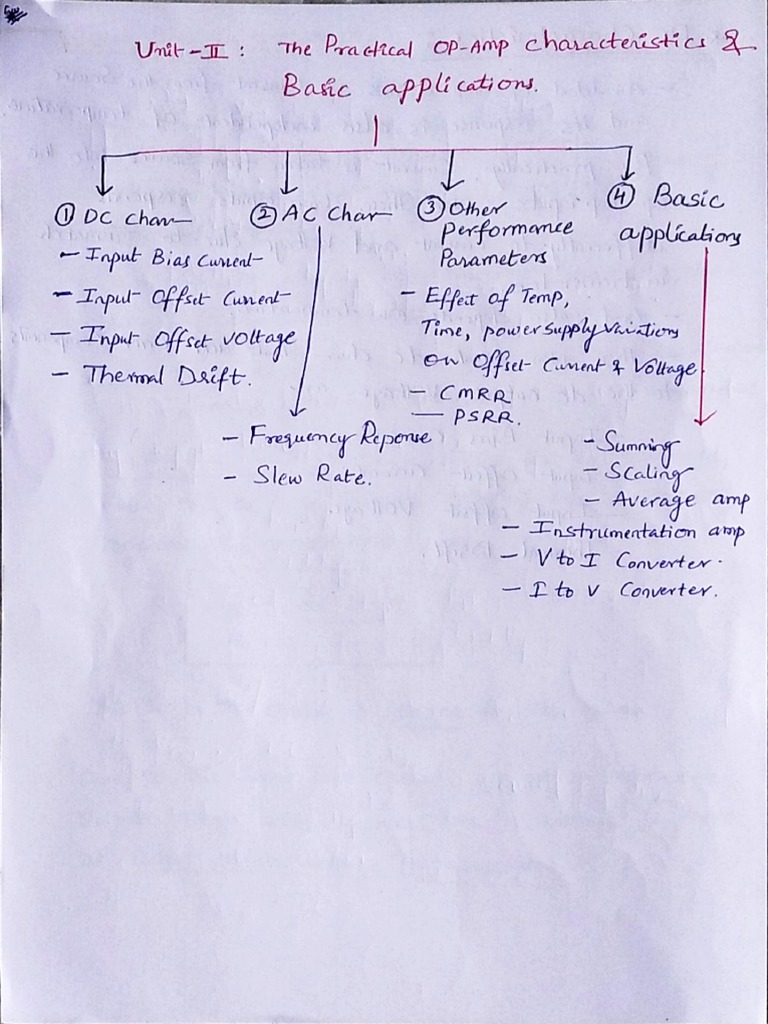 Unit-II : The Practical OP-Amp characteristics &
Basic applications.
① DC Char
- Input Bias Current
- Input Offset Current
- Input Offset Voltage
- Thermal Drift.
② AC Char
- Frequency Reponse
- Slew Rate.
③ Other
performance
Parameters
- Effect of Temp,
Time, power supply Variations
on Offset Current & Voltage
- CMRR
- PSRR.
④ Basic
applications
- Summing
- Scaling
- Average amp
- Instrumentation amp
- V to I Converter.
- I to V Converter.